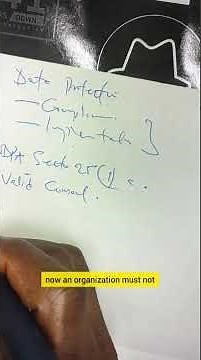 DOWN
Data Protection
— Complian
— Implementatn
DPA Sectn 25 (1) c.
Valid Consent.
now an organization must not